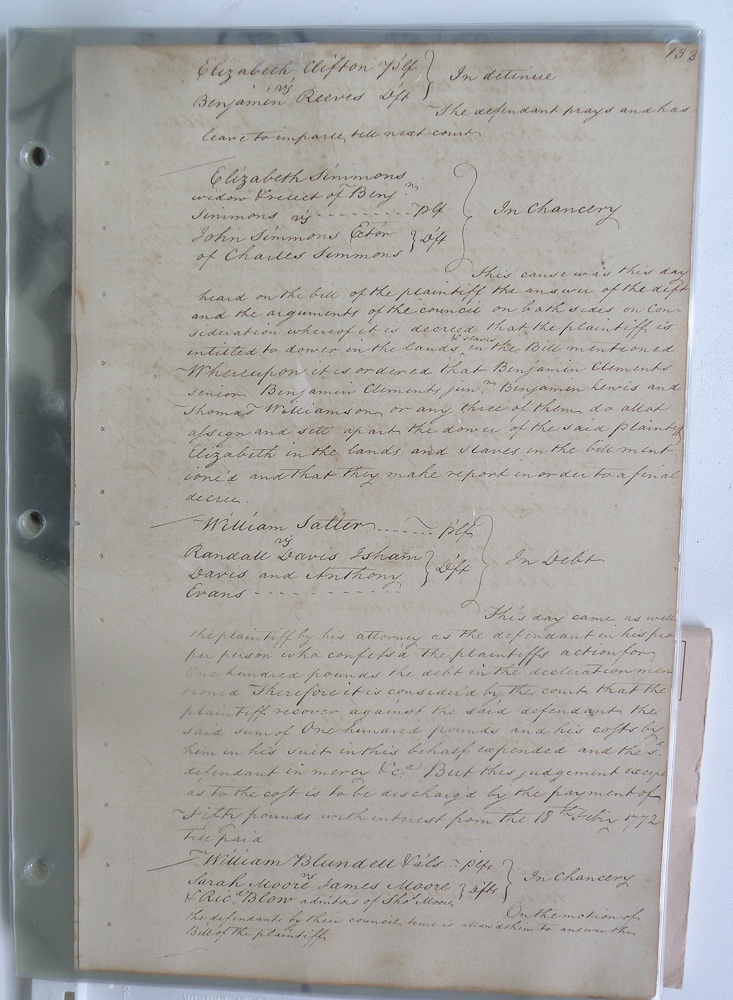 133
Elizabeth Clifton Plf
vs
In detinue
Benjamin Reeves Dft
The defendant prays and has
leave to imparle till next court
Elizabeth Simmons
widow & relict of Benjn
Simmons vs - - - - - - - Plf
In Chancery
John Simmons Exctor
of Charles Simmons
Dft
This cause was this day
heard on the bill of the plaintiff the answer of the deft
and the arguments of the council on both sides on Con-
sideration whereof it is decreed that the plaintiff is
intitled to dower in the lands & slaves in the Bill mentioned
Whereupon it is ordered that Benjamin Clements
senior Benjamin Clements junr Benjamin Lewis and
Thomas Williamson or any three of them do allot
assign and sett apart the dower of the said Plaintiff
Elizabeth in the lands and slaves in the bill ment
ione'd and that they make report in order to a final
decree.
William Salter - - - - - - - Plf
vs
Randall Davis Isham
Davis and Anthony
Evans - - - - - - - - - - -
Dft
In Debt
This day came as well
the plaintiff by his attorney as the defendant in his pro
per person who confess'd the plaintiffs action for
One hundred pounds the debt in the declaration men
tioned Therefore it is consider'd by the court that the
plaintiff recover against the said defendant the
said sum of One hundred pounds and his costs by
him in his suit in this behalf expended and the sd
defendant in mercy &ca But this judgement except
as to the cost is to be discharg'd by the payment of
Fifty pounds with interest from the 18th Febry 1772
till paid
William Blundell & als - - Plfs
vs
Sarah Moore James Moore
& Ricd Blow admitors of Thos Moore
Dfts
In Chancery
On the motion of
the defendants by their council time is allow'd them to answer the
Bill of the plaintiffs